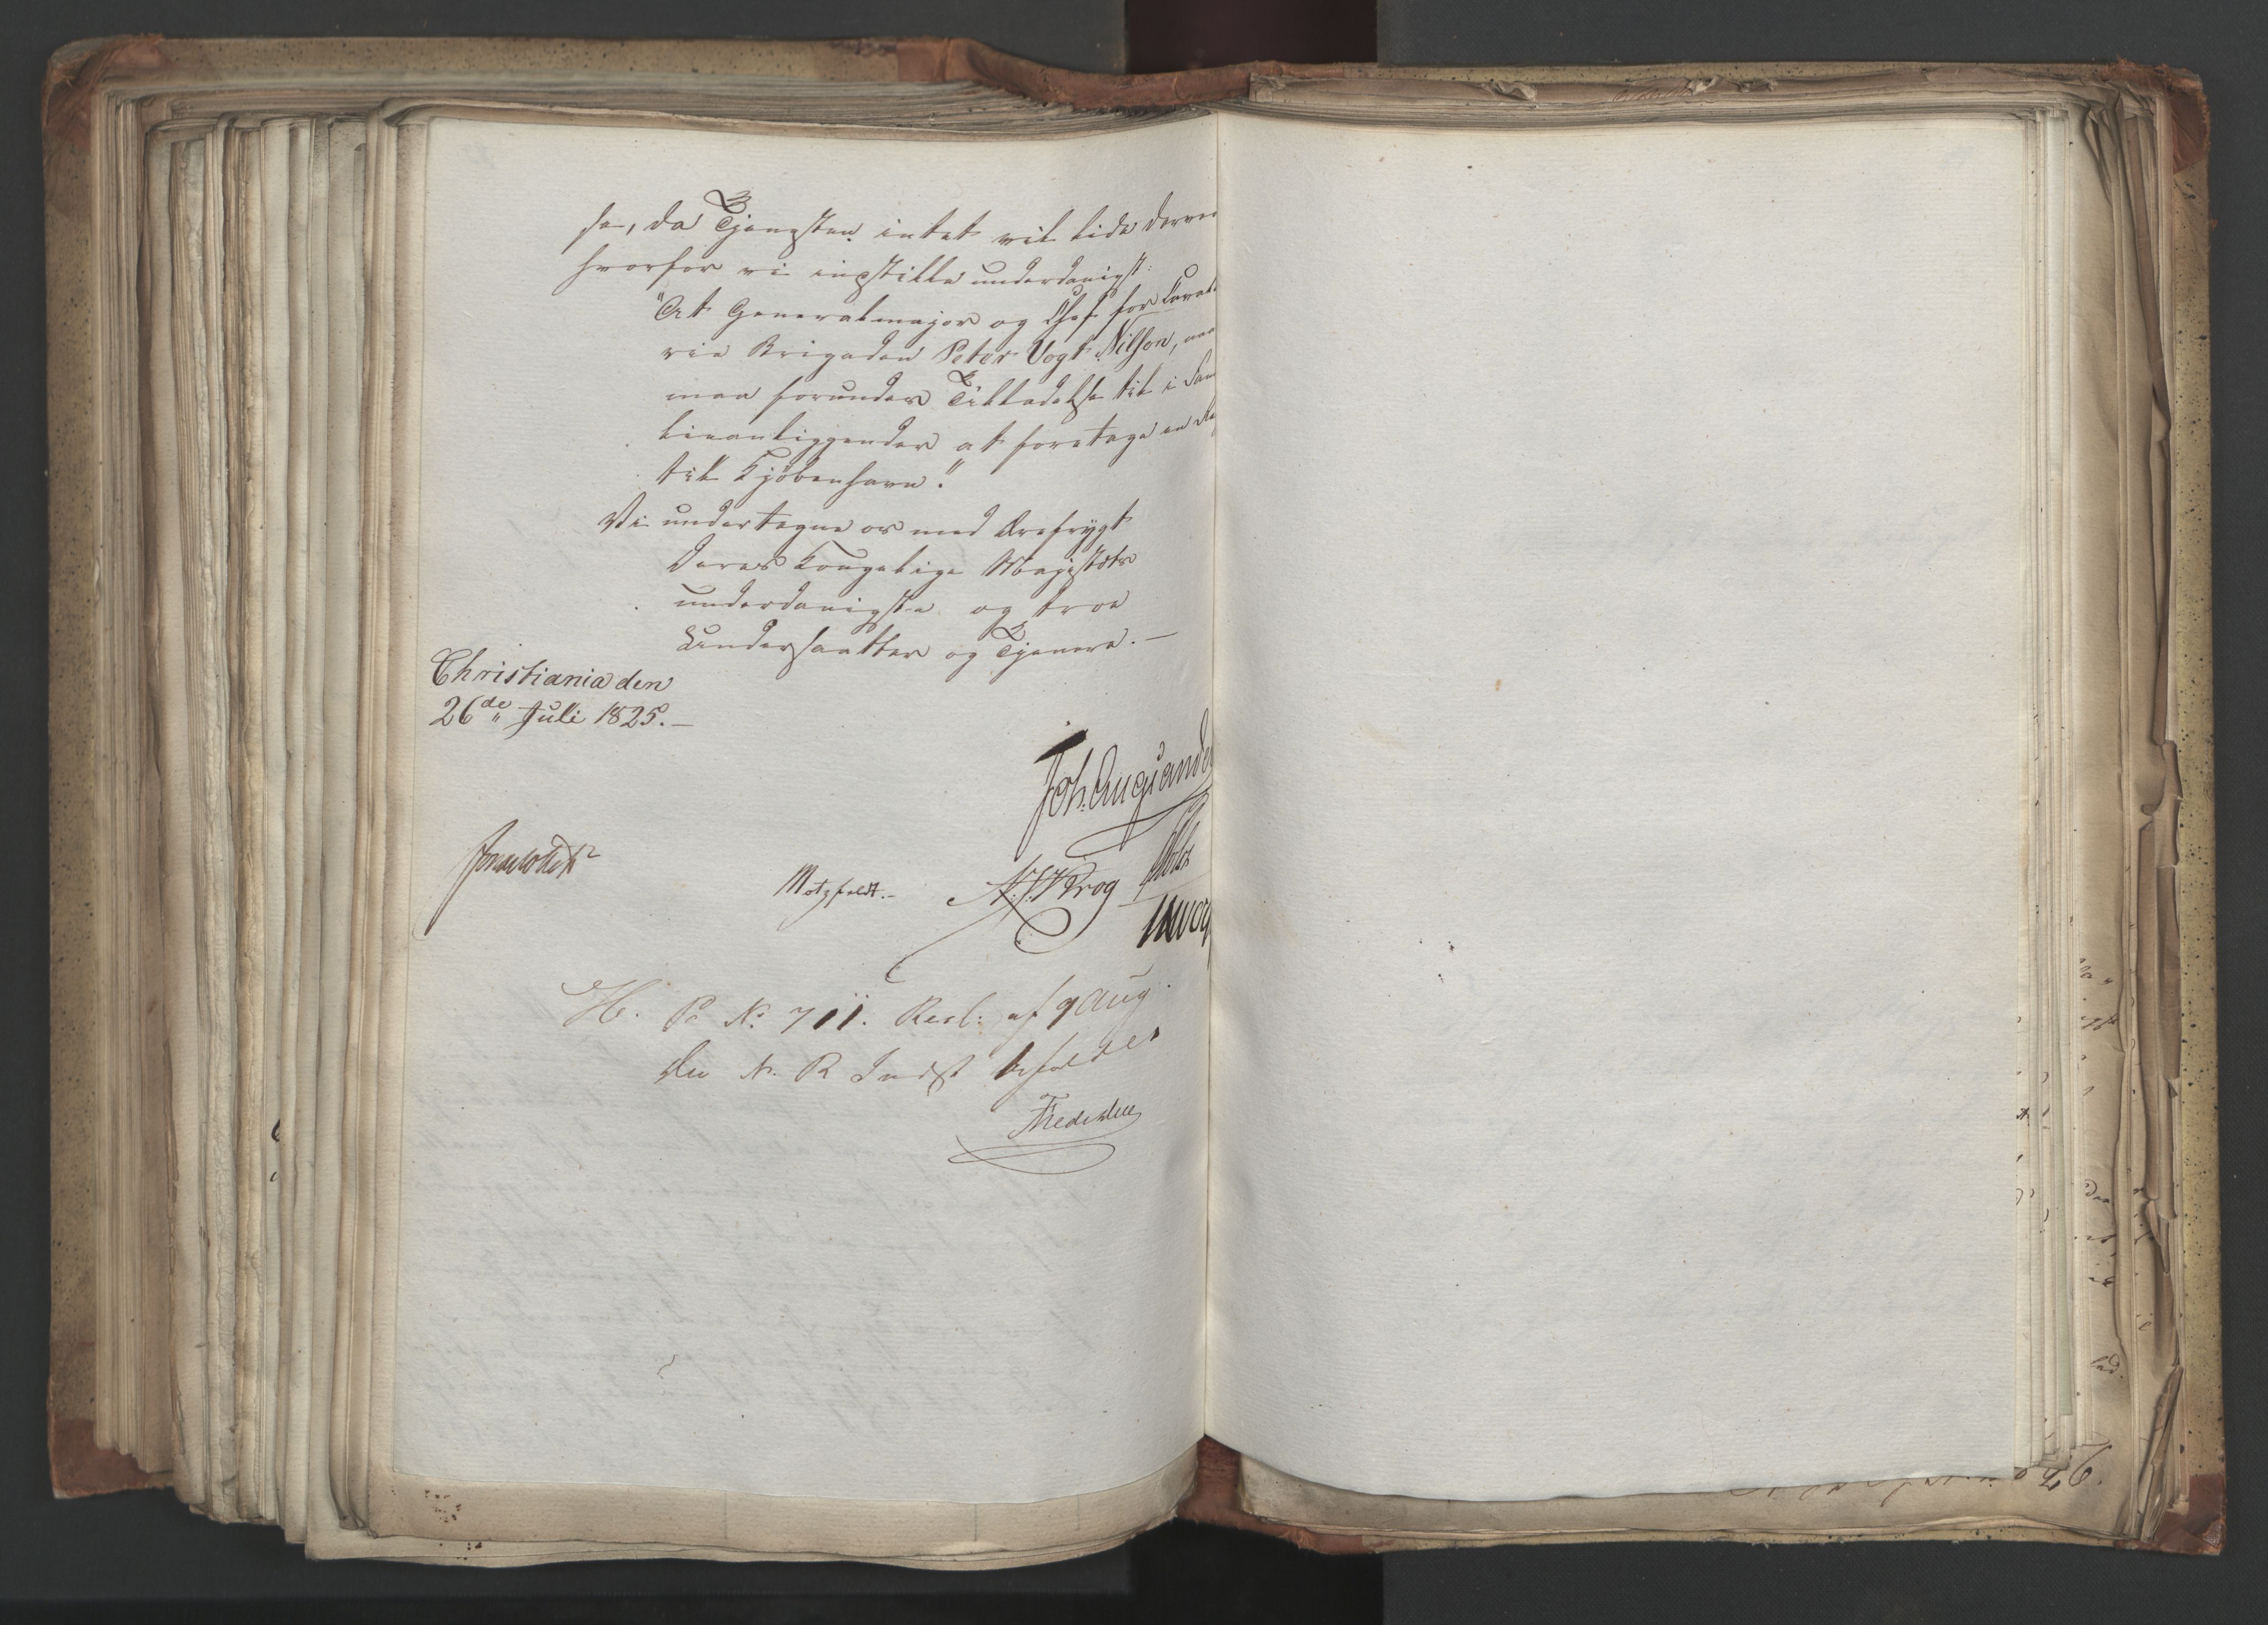 se, da Tjenesten intet vil lide derved
hvorfor vi inpstille underdanigst:
"At Generalmajor og Chef for Caval
rie Brigaden Peter Vogt Nilson, naa
maa forundes Tilladelse til i Fam
lieanliggender at foretage en Re
til Kjöbenhavn."
Vi undertegne os med Ærefrygt
Deres Kongelige Majestæts
underdanigste og troe
Undersaatter og Tjenere.—
Christiania den
26de Juli 1825.—
Joh. Aug. Sande
Motzfeldt.— N. J. Krog
H. Pr No 711. Resl: af 9 Aug.
Den N. R Indst bifaldes